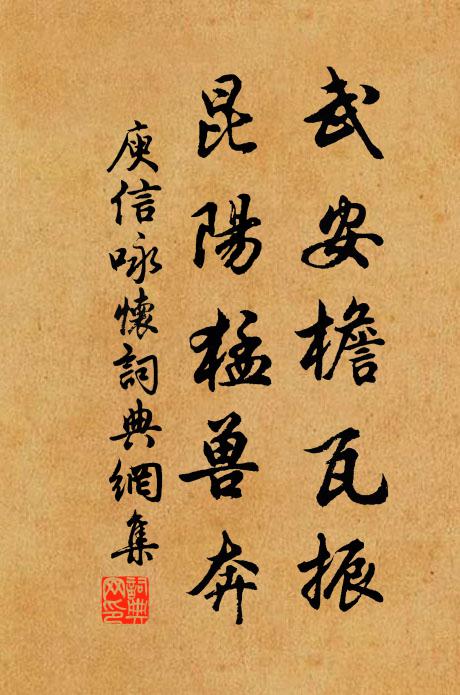 武安檐瓦振
昆陽猛兽奔
庾信咏懷詞典網集
詞典
网印